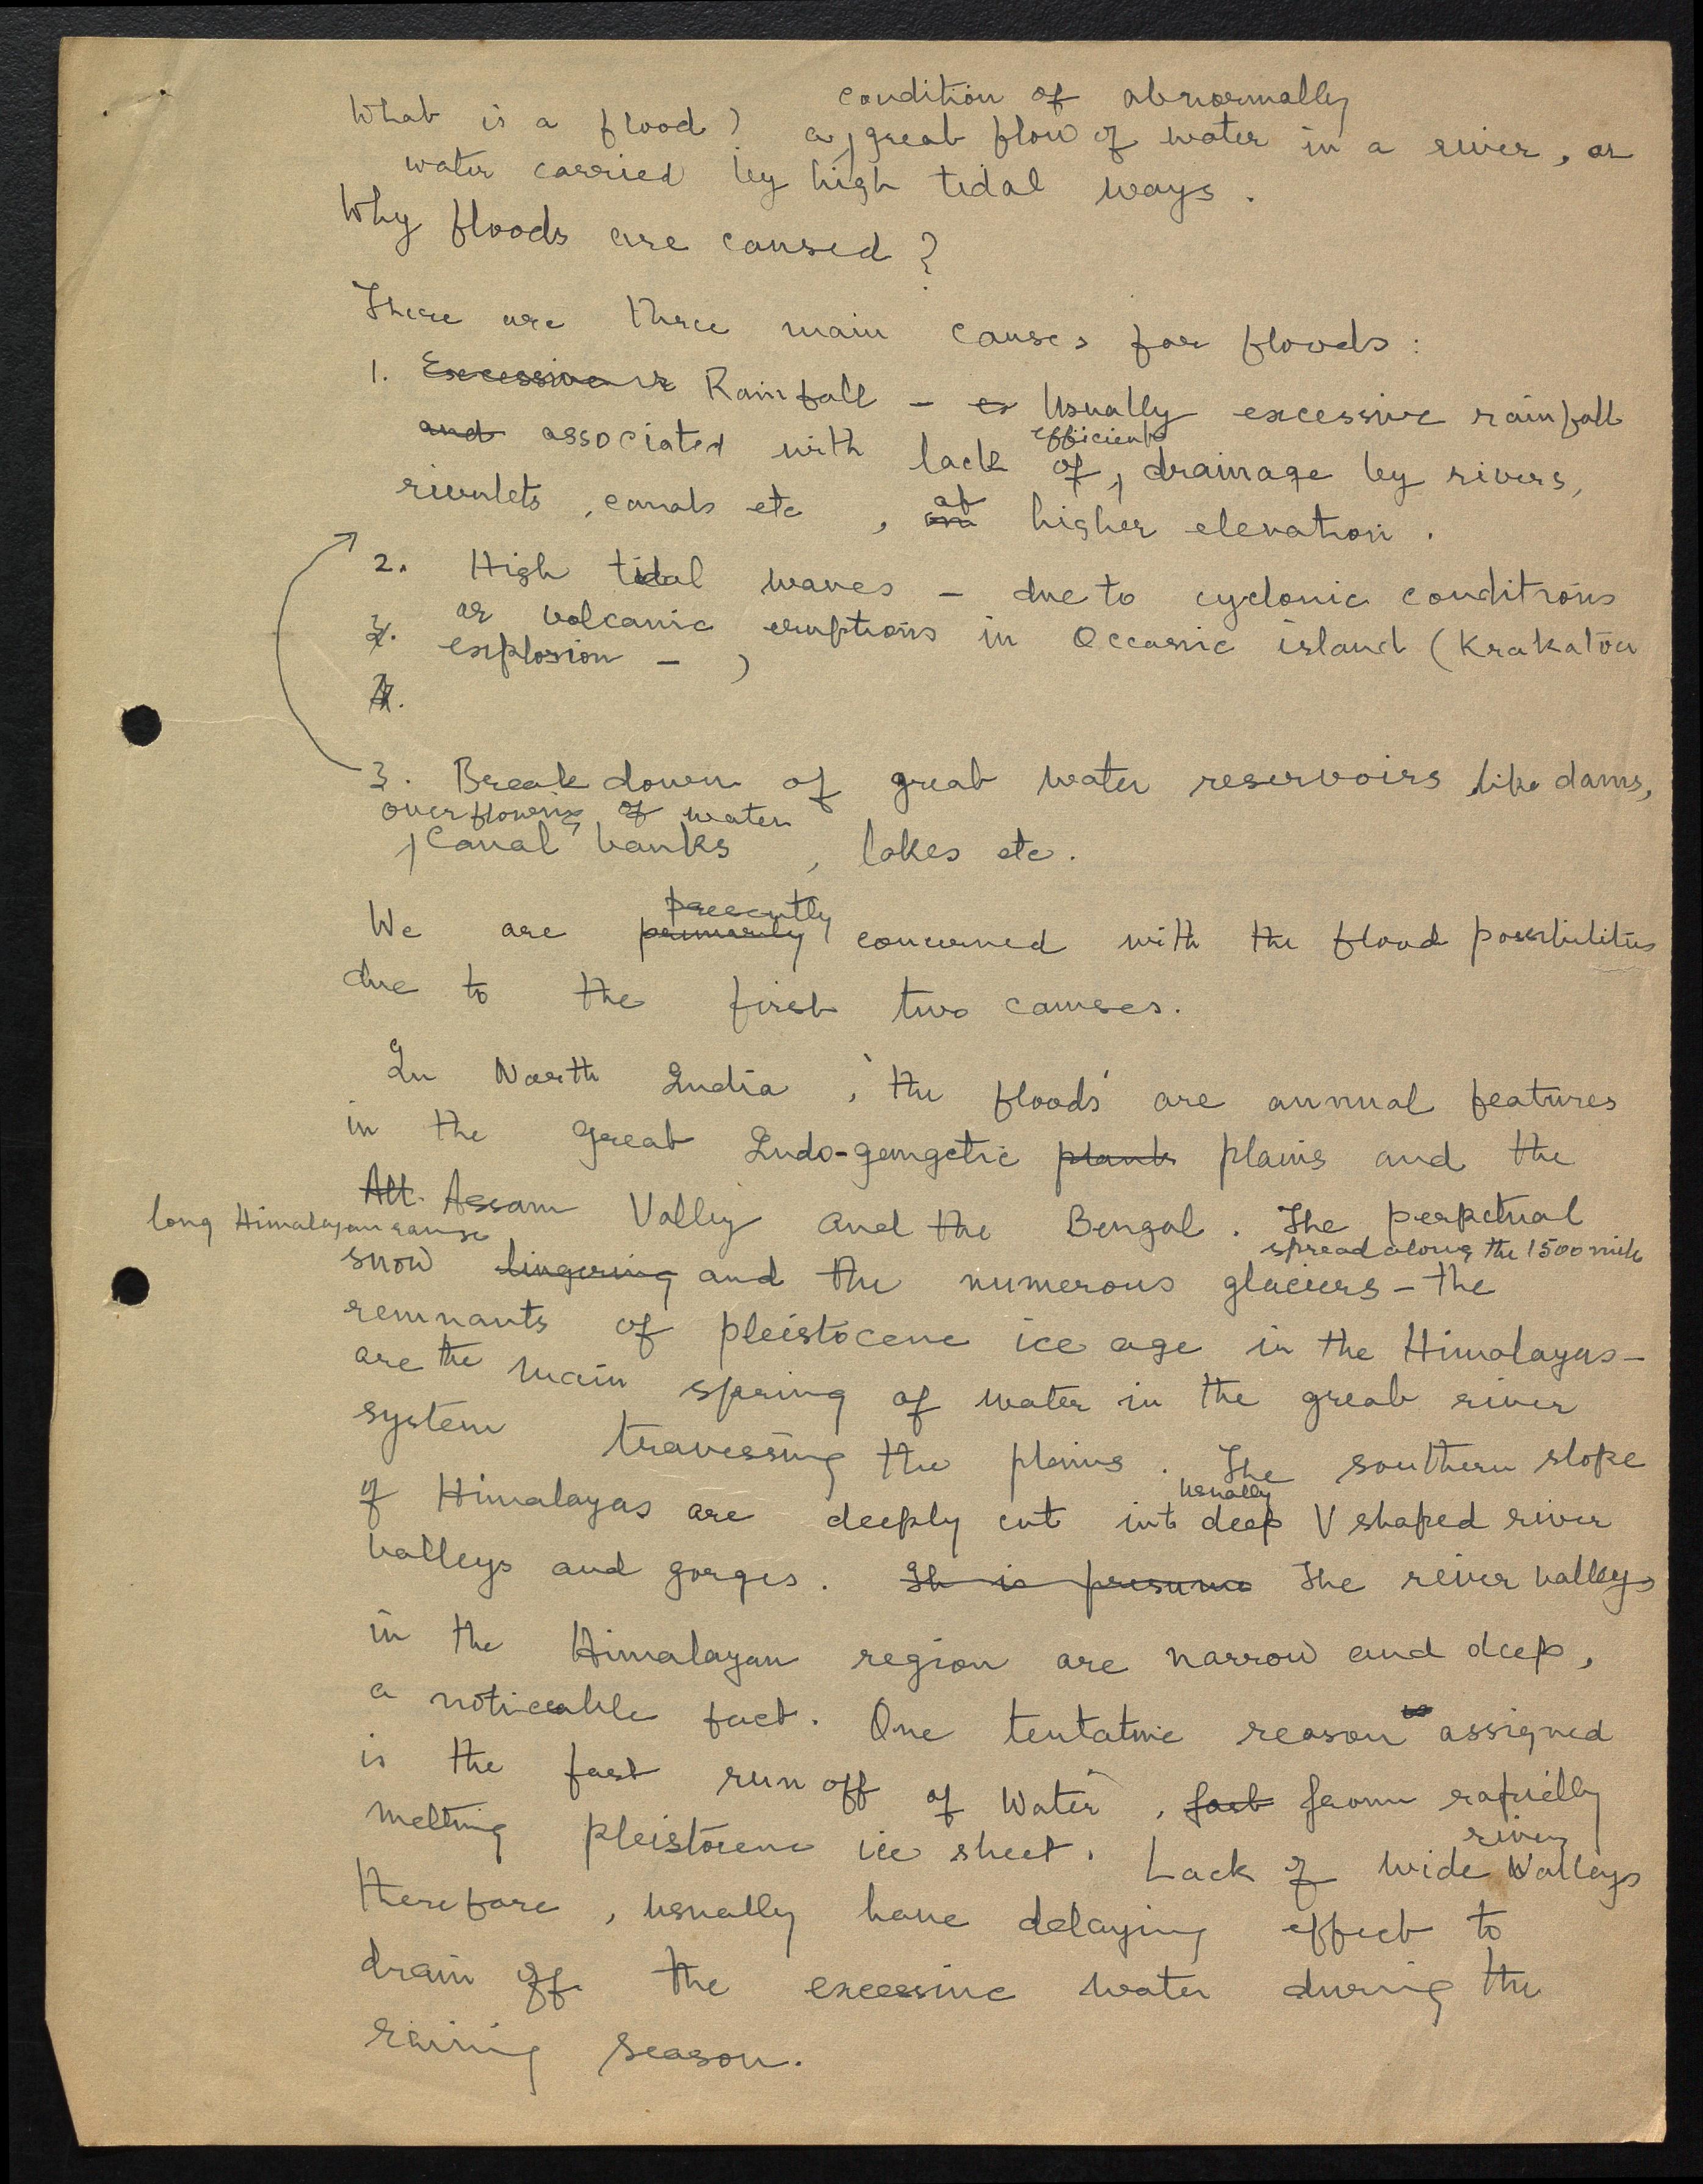 condition of abnormally
What is a flood? a great flow of water in a river, or
water carried by high tidal ways.
Why floods are caused?
There are three main causes for floods:
1. Excessive r Rainfall - ex Usually excessive rainfall
efficient
and associated with lack of, drainage by rivers,
at
rivulets, canals etc, on higher elevation.
2. High tidal waves - due to cyclonic conditions
or volcanic eruptions in Occanic island (Krakatoa
3. explosion - )
3. Break down of great water reservoirs like dams,
overflowing of water
Canal banks, lakes etc.
presently
We are primarily concerned with the flood possibilities
due to the first two causes.
In North India, 'the floods' are annual features
in the great Indo-gangetic plants plains and the
All. Assam Valley and the Bengal. The perpetual
long Himalayan range
spread along the 1500 mile
snow lingering and the numerous glaciers - the
remnants of pleistocene ice age in the Himalayas -
are the main spring of water in the great river
system traverssing the plains. The southern slope
usually
of Himalayas are deeply cut into deep V shaped river
valleys and gorges. It is presume The river valleys
in the Himalayan region are narrow and deep,
a noticeable fact. One tentative reason is assigned
is the fast run off of Water, fast from rapidly
river
melting pleistocene ice sheet. Lack of wide Valleys
therefore, usually have delaying effect to
drain off the excessive water during the
raining season.